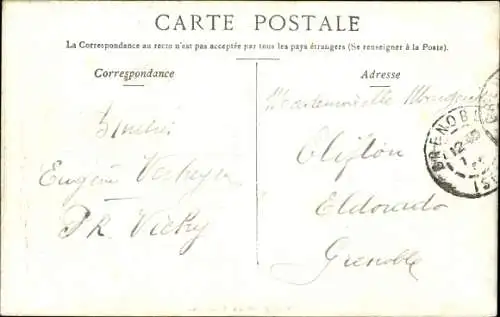 CARTE POSTALE
La Correspondance au recto n'est pas acceptée par tous les pays étrangers (Se renseigner à la Poste).
Correspondance
Adresse
Eugène
P.R. Vichy
Mademoiselle
Clifton
Eldorado
Grenoble
GRENOBLE
12